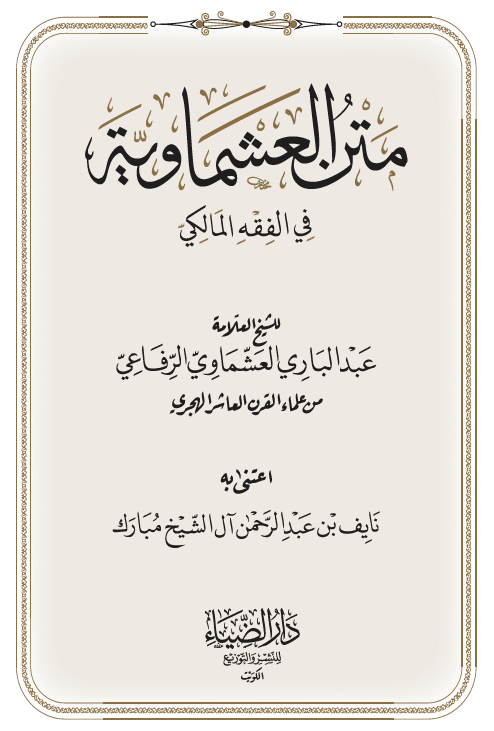 متن العشماوية
في الفقه المالكي
للشيخ العلّامة
عَبْد البَارِي العَشْمَاوِيّ الرِّفَاعِيّ
من علماء القرن العاشر الهجري
اعتنى به
نَايِف بْن عَبْدِ الرَّحْمٰن آل الشَّيْخ مُبَارَك
دَارُ الضِّيَاءِ
لِلنَّشِــرِ وَالتَّوْزِيْعِ
الكُوَيْت